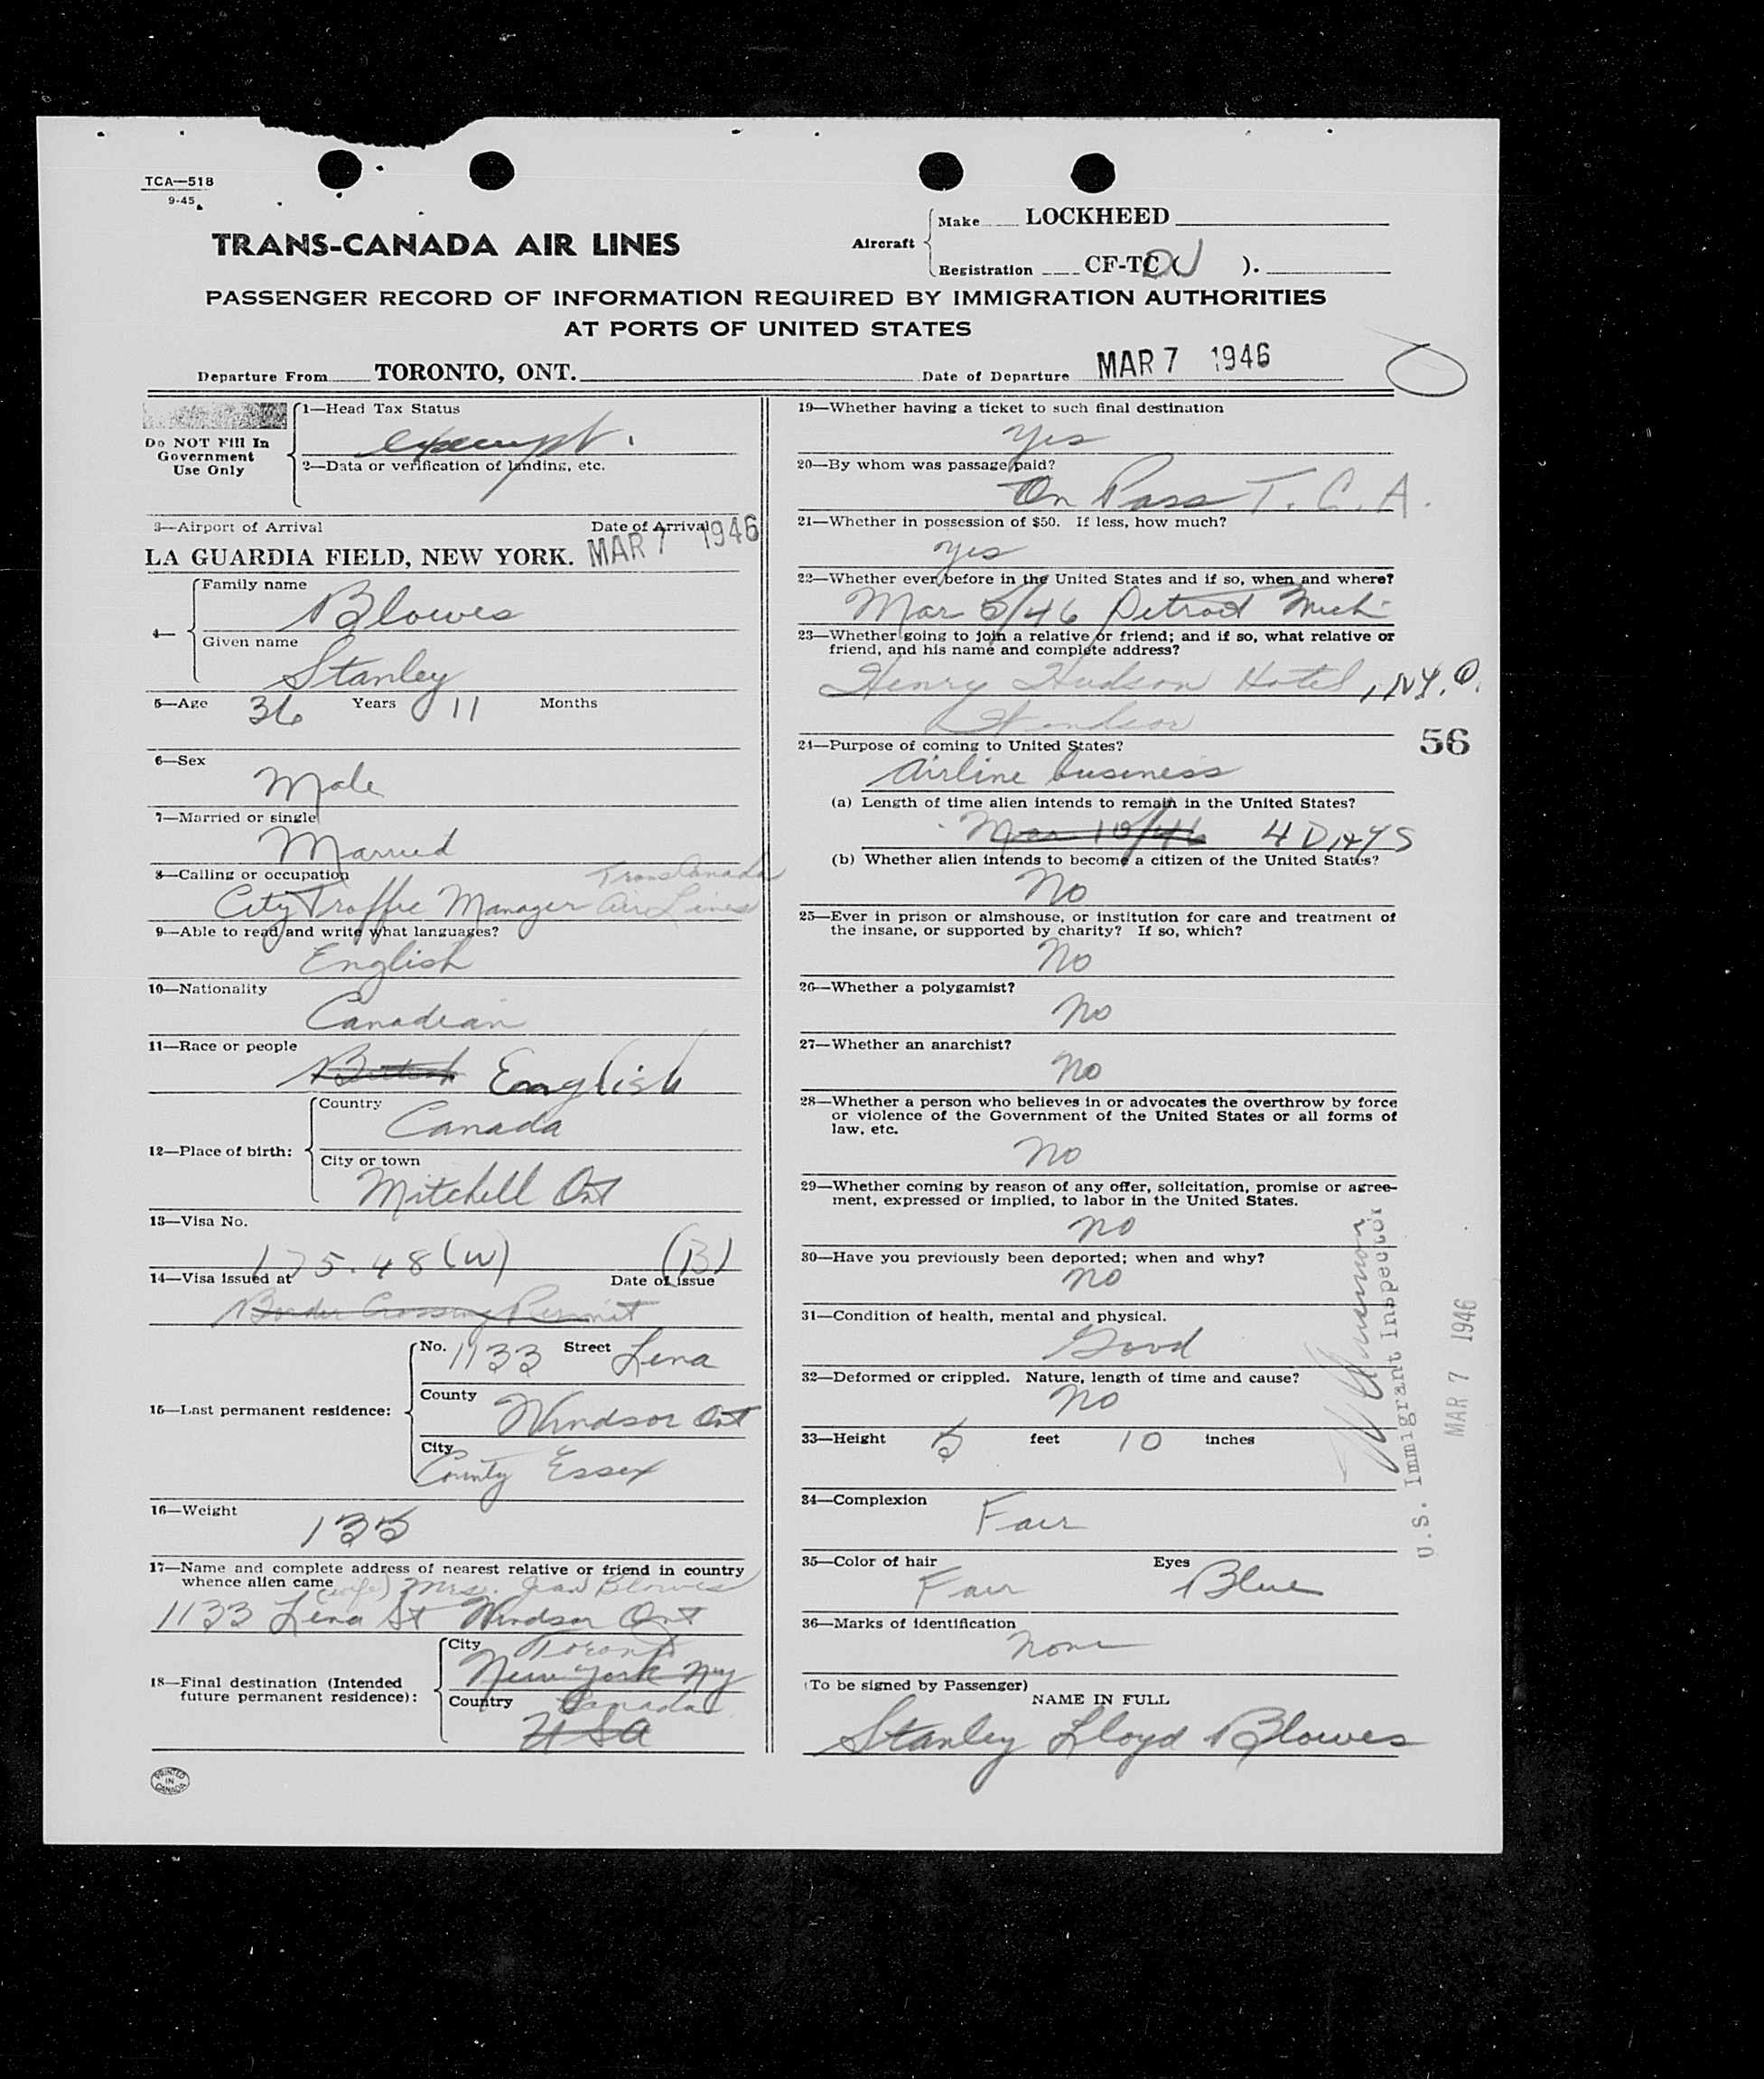 TCA—518
9-45
TRANS-CANADA AIR LINES
Aircraft
Make LOCKHEED
Registration CF-TC ( ).
PASSENGER RECORD OF INFORMATION REQUIRED BY IMMIGRATION AUTHORITIES
AT PORTS OF UNITED STATES
Departure From TORONTO, ONT. Date of Departure MAR 7 1946
Do NOT Fill In
Government
Use Only
1—Head Tax Status
exempt.
2—Data or verification of landing, etc.
3—Airport of Arrival Date of Arrival
LA GUARDIA FIELD, NEW YORK. MAR 7 1946
4—
Family name
Blowes
Given name
Stanley
5—Age 36 Years 11 Months
6—Sex
Male
7—Married or single
Married
8—Calling or occupation
City Traffic Manager Trans Canada Air Lines
9—Able to read and write what languages?
English
10—Nationality
Canadian
11—Race or people
British English
12—Place of birth:
Country
Canada
City or town
Mitchell Ont
13—Visa No.
175.48 (W) (B)
14—Visa issued at Date of issue
Border Crossing Permit
15—Last permanent residence:
No. 1133 Street Lena
County
Windsor Ont
City
County Essex
16—Weight
135
17—Name and complete address of nearest relative or friend in country
whence alien came (wife) Mrs. Jean Blowes
1133 Lena St Windsor Ont
18—Final destination (Intended
future permanent residence):
City Toronto
New York NY
Country Canada
USA
PRINTED IN CANADA
19—Whether having a ticket to such final destination
Yes
20—By whom was passage paid?
On Pass T. C. A.
21—Whether in possession of $50. If less, how much?
yes
22—Whether ever before in the United States and if so, when and where?
Mar 5/46 Detroit Mich
23—Whether going to join a relative or friend; and if so, what relative or
friend, and his name and complete address?
Henry Hudson Hotel, NY.C.
Windsor
56
24—Purpose of coming to United States?
Airline business
(a) Length of time alien intends to remain in the United States?
Mar 10/46 4 DAYS
(b) Whether alien intends to become a citizen of the United States?
No
25—Ever in prison or almshouse, or institution for care and treatment of
the insane, or supported by charity? If so, which?
No
26—Whether a polygamist?
No
27—Whether an anarchist?
No
28—Whether a person who believes in or advocates the overthrow by force
or violence of the Government of the United States or all forms of
law, etc.
No
29—Whether coming by reason of any offer, solicitation, promise or agree-
ment, expressed or implied, to labor in the United States.
No
30—Have you previously been deported; when and why?
No
31—Condition of health, mental and physical.
Good
32—Deformed or crippled. Nature, length of time and cause?
No
33—Height 5 feet 10 inches
34—Complexion
Fair
35—Color of hair Eyes
Fair Blue
36—Marks of identification
None
(To be signed by Passenger)
NAME IN FULL
Stanley Lloyd Blowes
U.S. Immigrant Inspector
MAR 7 1946